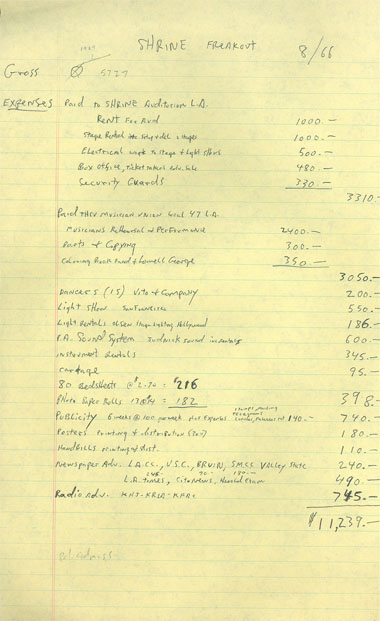 SHRINE FREAKOUT 8/66
Gross
EXPENSES Paid to SHRINE Auditorium L.A.
Rent For Aud 1000.—
Stage Rental 1000.—
Electrical work to stage + light 500.—
Box Office, ticket takers 480.—
Security Guards 330.—
3310.—
Local 47 L.A.
Musicians Rehearsal + Performance 2400.—
Parts + Copying 300.—
Coloring Book Band + Lowell George 350.—
3050.—
DANCERS (15) Vito + Company 200.—
Light Show San Francisco 550.—
Light Rentals Stage Lighting Hollywood 186.—
P.A. Sound System 600.—
instrument Rentals 345.—
cartage 95.—
80 Bedsheets @ $2.70 = $216
Paper Rolls = 182 398.—
Publicity 6 weeks @ 100. per week 140.— 740.—
Posters printing + distribution 180.—
Handbills printing + dist. 110.—
Newspaper Adv. L.A.C.C., U.S.C., BRUIN, S.M.C.C. Valley State 240.—
L.A. Times, 490.—
Radio Adv. KHJ-KRLA-KFRC 745.—
$11,239.—